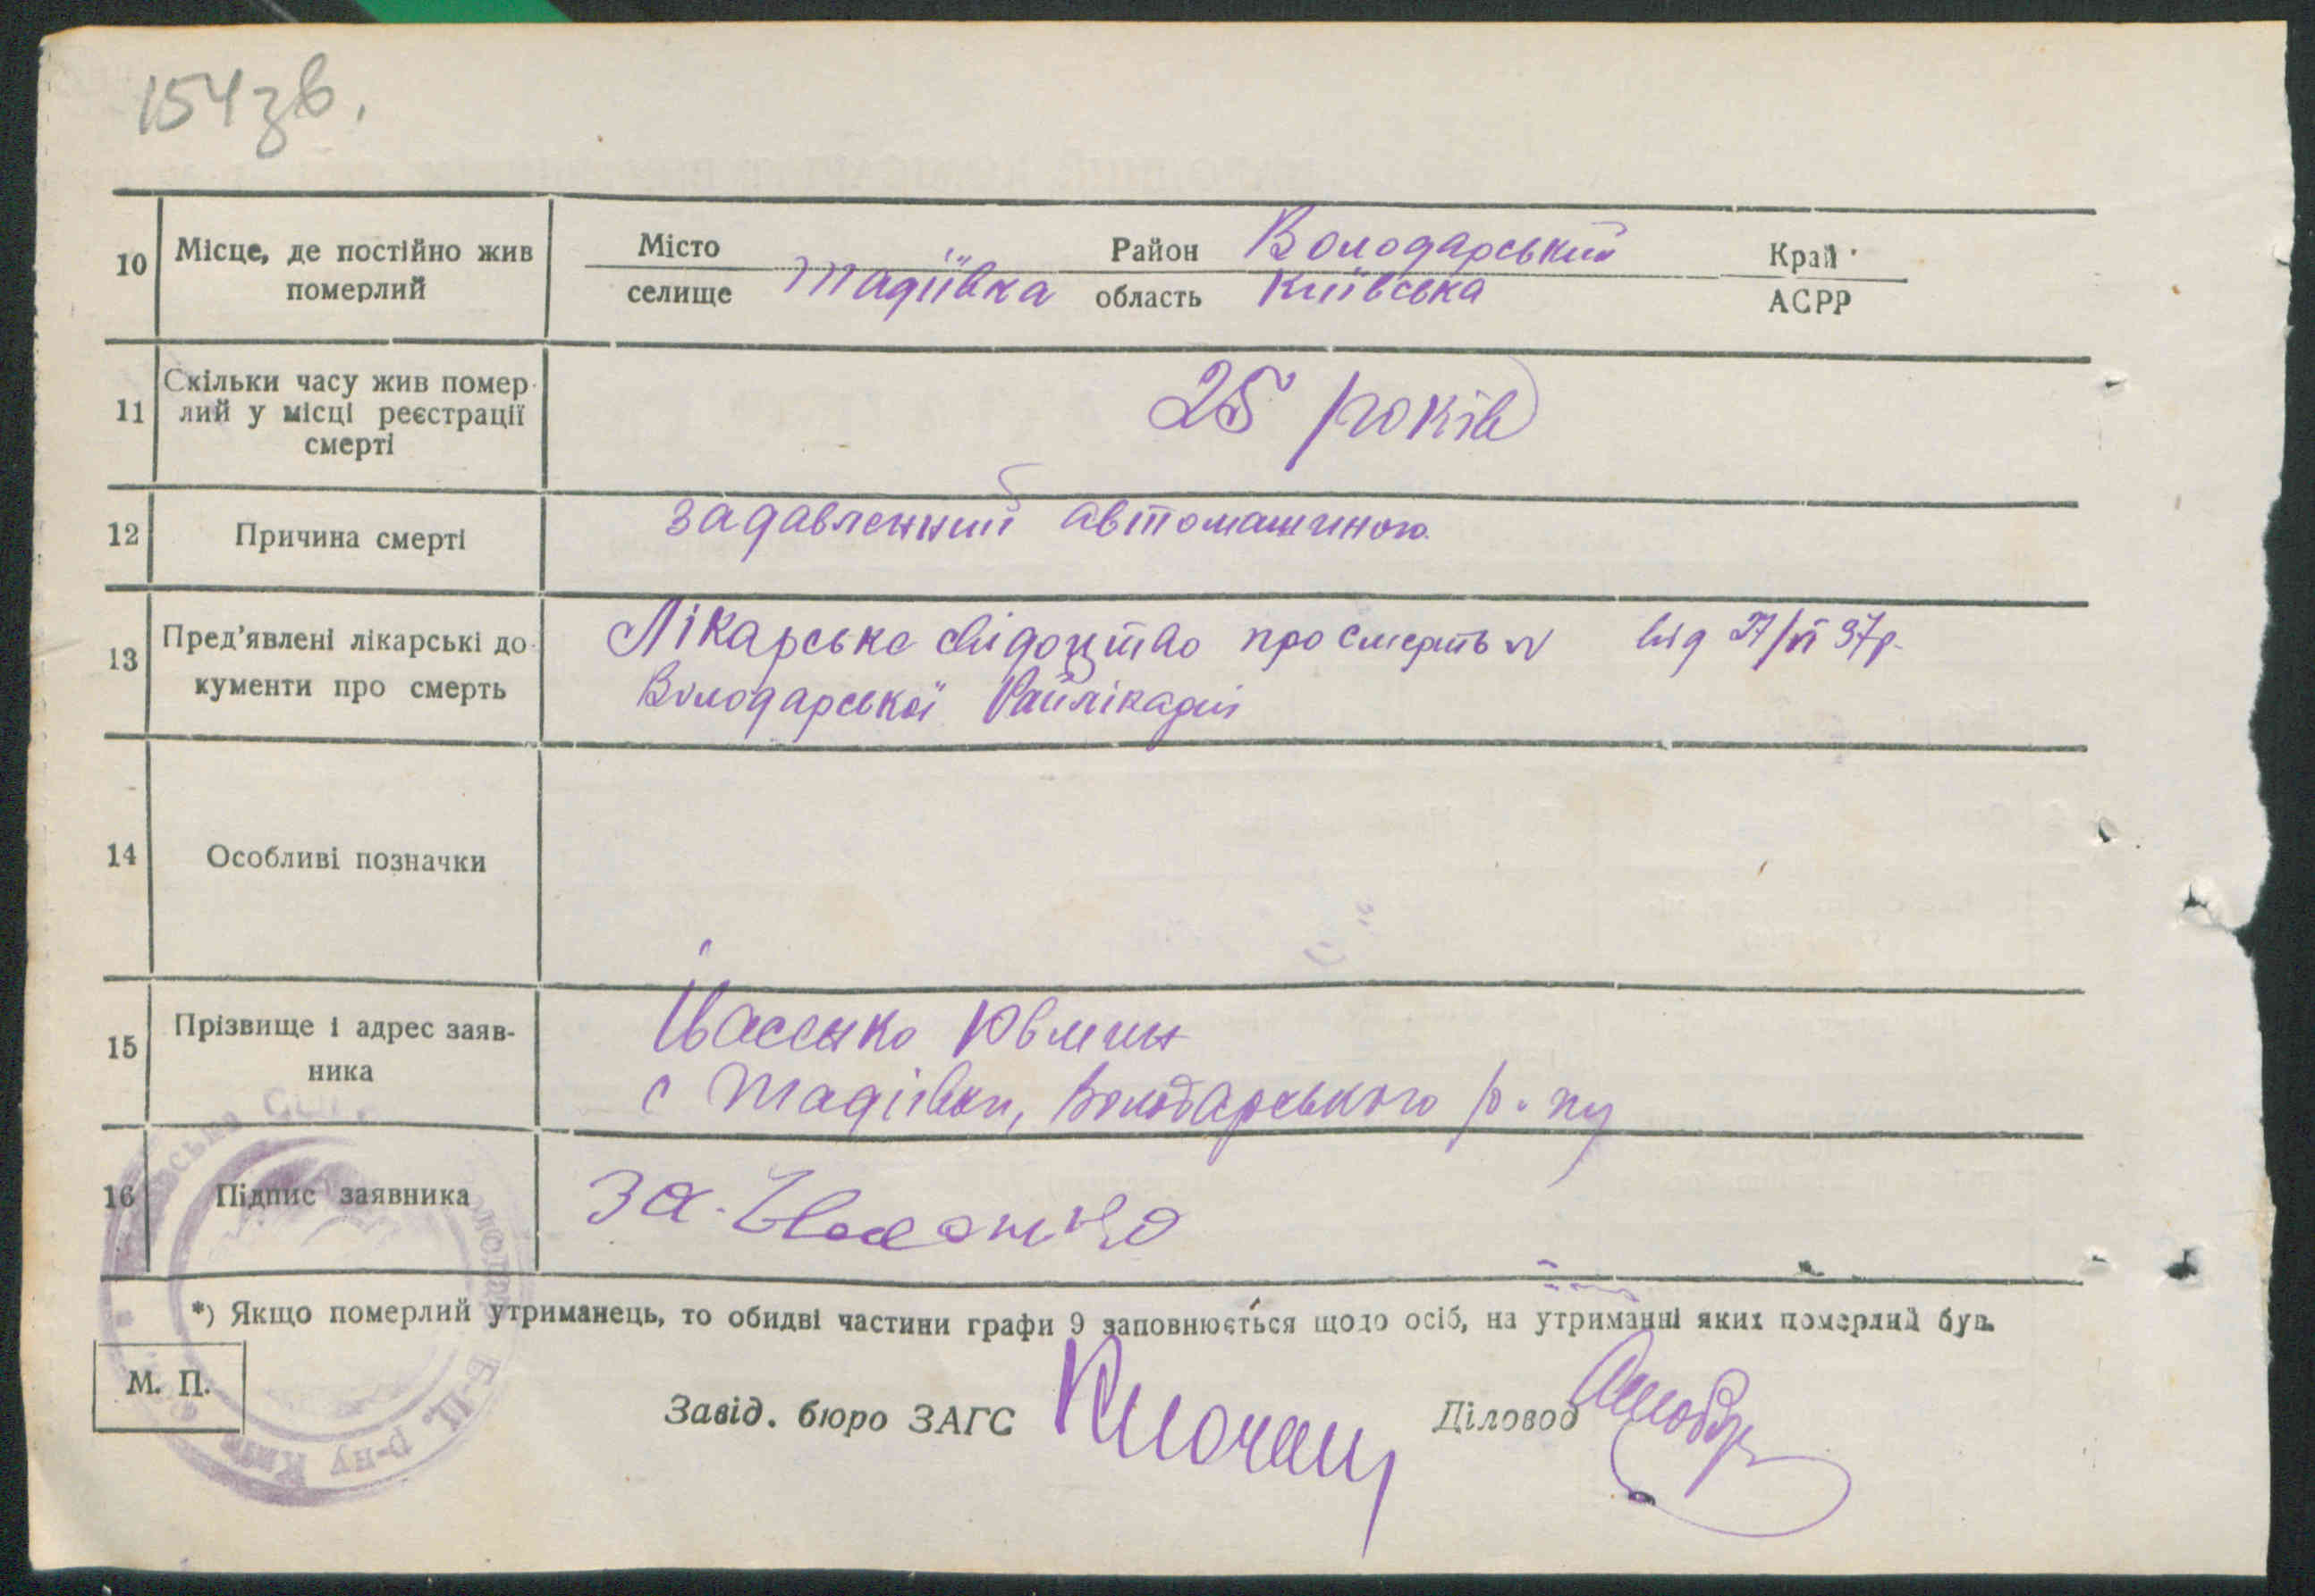 154 зв.
10 Місце, де постійно жив
померлий
Місто
селище
Тадіївка
Район
область
Володарський
Київська
Край
АСРР
11 Скільки часу жив помер-
лий у місці реєстрації
смерті
25 років
12 Причина смерті
задавленний автомашиною.
13 Пред'явлені лікарські до-
кументи про смерть
Лікарське свідоцтво про смерть № від 27/VI 37р.
Володарської Райлікарні
14 Особливі позначки
15 Прізвище і адрес заяв-
ника
Івасенко
с Тадіївки, Володарського р-ну
16 Підпис заявника
За.
*) Якщо померлий утриманець, то обидві частини графи 9 заповнюється щодо осіб, на утриманні яких померлий був.
М. П.
Завід. бюро ЗАГС
Діловод
Б-Ц. р-ну Київ